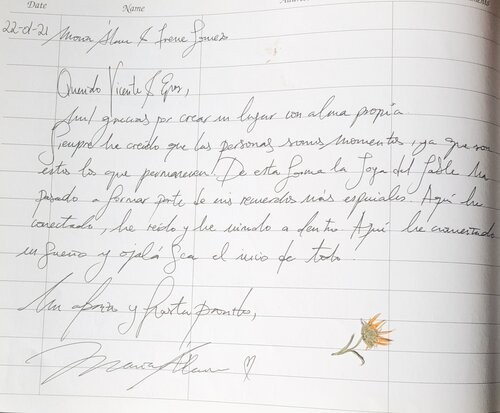 Date Name
22-01-21 María Álam & Irene Gomez
Querido Vicente & Epos,
Mil gracias por crear un lugar con alma propia
Siempre he creido que las personas somos momentos, ya que son
estos los que permanecen. De esta forma la Joya del Sable ha
pasado a formar parte de mis recuerdos más especiales. Aquí he
conectado, he reido y he mirado a dentro. Aquí he
un sueño y ojalá sea el inicio de todo.
Un abrazo y hasta pronto,
María